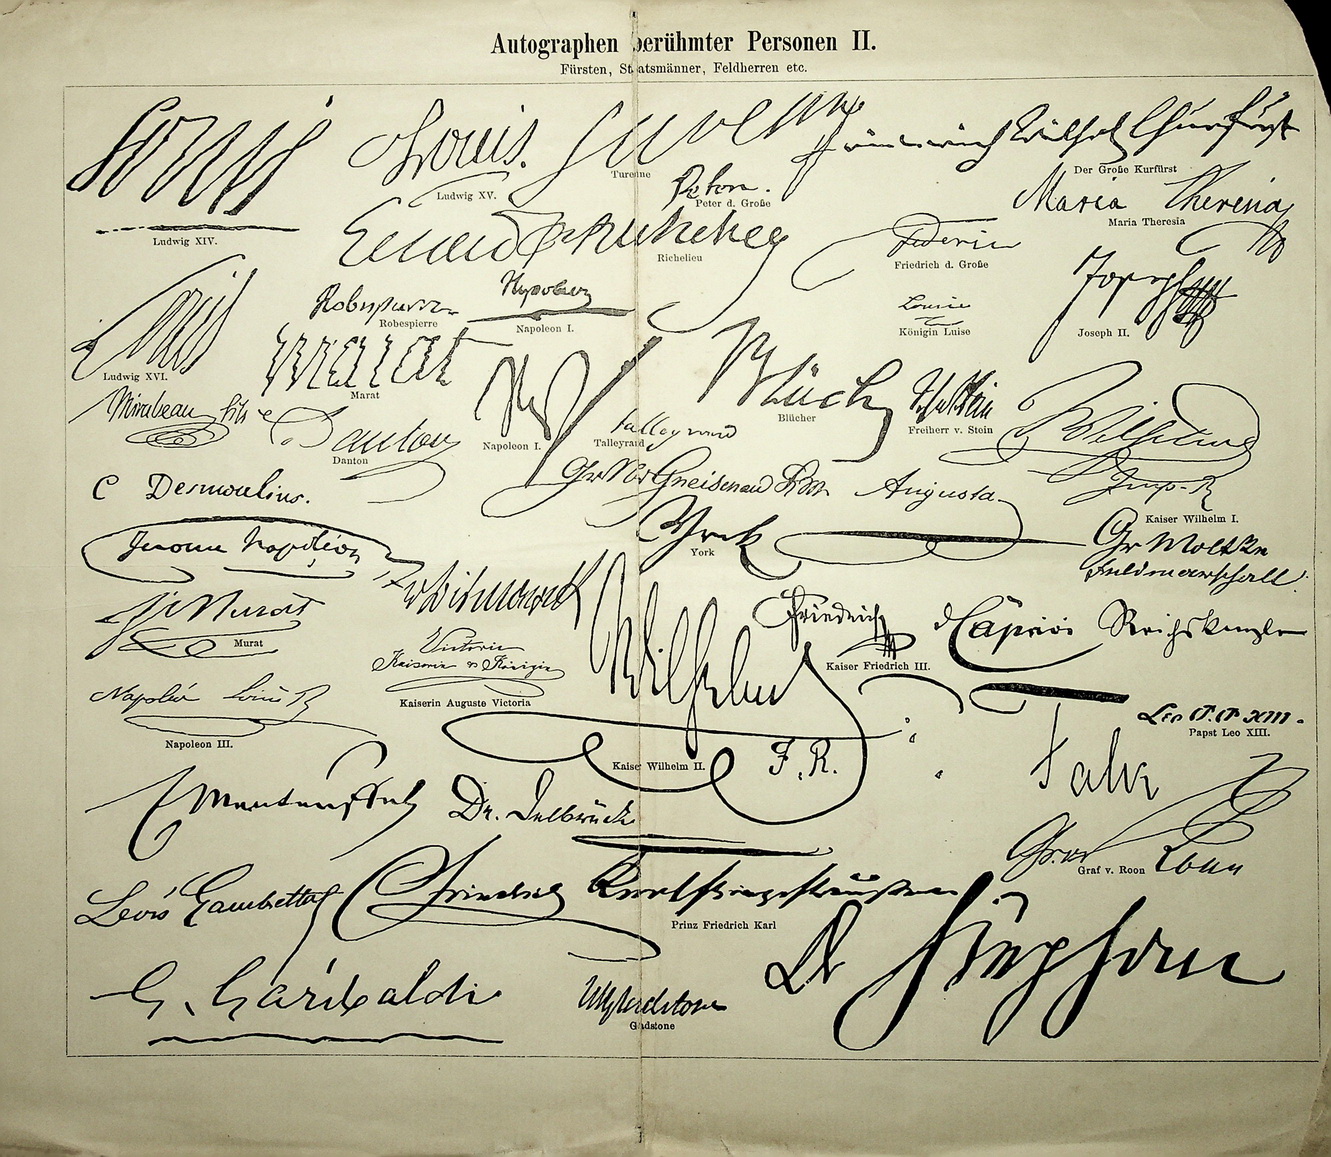 Autographen berühmter Personen II.
Fürsten, Staatsmänner, Feldherren etc.
Louis
Ludwig XIV.
Louis.
Ludwig XV.
Turenne
Peter d. Große
Der Große Kurfürst
Maria Theresia
Maria Theresia
Richelieu
Friedrich d. Große
Louis
Ludwig XVI.
Robespierre
Robespierre
Napoleon I.
Louise
Königin Luise
Joseph
Joseph II.
marat
Marat
Mirabeau fils
Danton
Danton
Np
Napoleon I.
Talleyrand
Talleyrand
Blücher
Freiherr v. Stein
Wilhelm
Imp. R
Kaiser Wilhelm I.
C Desmoulins.
Gr N v Gneisenau
Augusta
York
York
Jerome Napoléon
v Bismarck
Gr Moltke
Feldmarschall
Murat
Victoria
Kaiserin u Königin
Kaiserin Auguste Victoria
Wilhelm
Kaiser Wilhelm II.
I. R.
Friedrich
Kaiser Friedrich III.
Caprivi Reichskanzler
Leo P.P. XIII.
Papst Leo XIII.
Napoléon Louis
Napoleon III.
Falk
E Manteuffel
Dr. Delbrück
Graf Roon
Graf v. Roon
Léon Gambetta
Friedrich Karl
Prinz Friedrich Karl
Dr Stephan
G. Garibaldi
WEGladstone
Gladstone